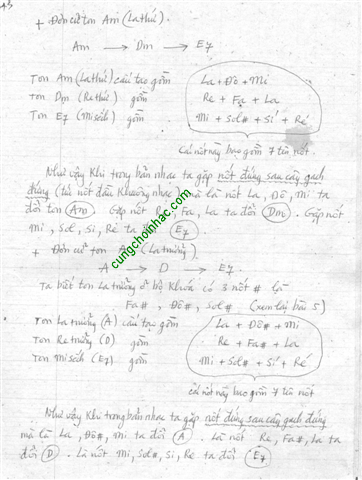 + Đờn cử ton Am (La thứ).
Am → Dm → E7
Ton Am (La thứ) cấu tạo gồm La + Đô + Mi
Ton Dm (Re thứ) gồm Re + Fa + La
Ton E7 (Mi sết) gồm Mi + Sol# + Si + Ré
Cái nốt này bao gồm 7 tên nốt.
Như vậy Khi trong bản nhạc ta gặp nốt đứng sau cây gạch
đứng (là nốt đầu Khuông nhạc) mà là nốt La, Đô, Mi ta
đổi tôn Am. Gặp nốt Re, Fa, La ta đổi Dm. Gặp nốt
Mi, Sol, Si, Re ta đổi E7
+ Đờn cử ton Am (La trưởng).
A → D → E7.
Ta biết ton La trưởng ở bộ Khoá có 3 nốt # là
Fa#, Đô#, Sol# (xem lại bài 5)
Ton La trưởng (A) cấu tạo gồm La + Đô# + Mi
Ton Re trưởng (D) gồm Re + Fa# + La
Ton Mi sết (E7) gồm Mi + Sol# + Si + Ré
cái nốt này bao gồm 7 tên nốt
Như vậy Khi trong bản nhạc ta gặp nốt đứng sau cây gạch đứng
mà là La, Đô#, Mi ta đổi A. Là nốt Re, Fa#, La ta
đổi D. Là nốt Mi, Sol#, Si, Re ta đổi E7
cungchoinhac.com